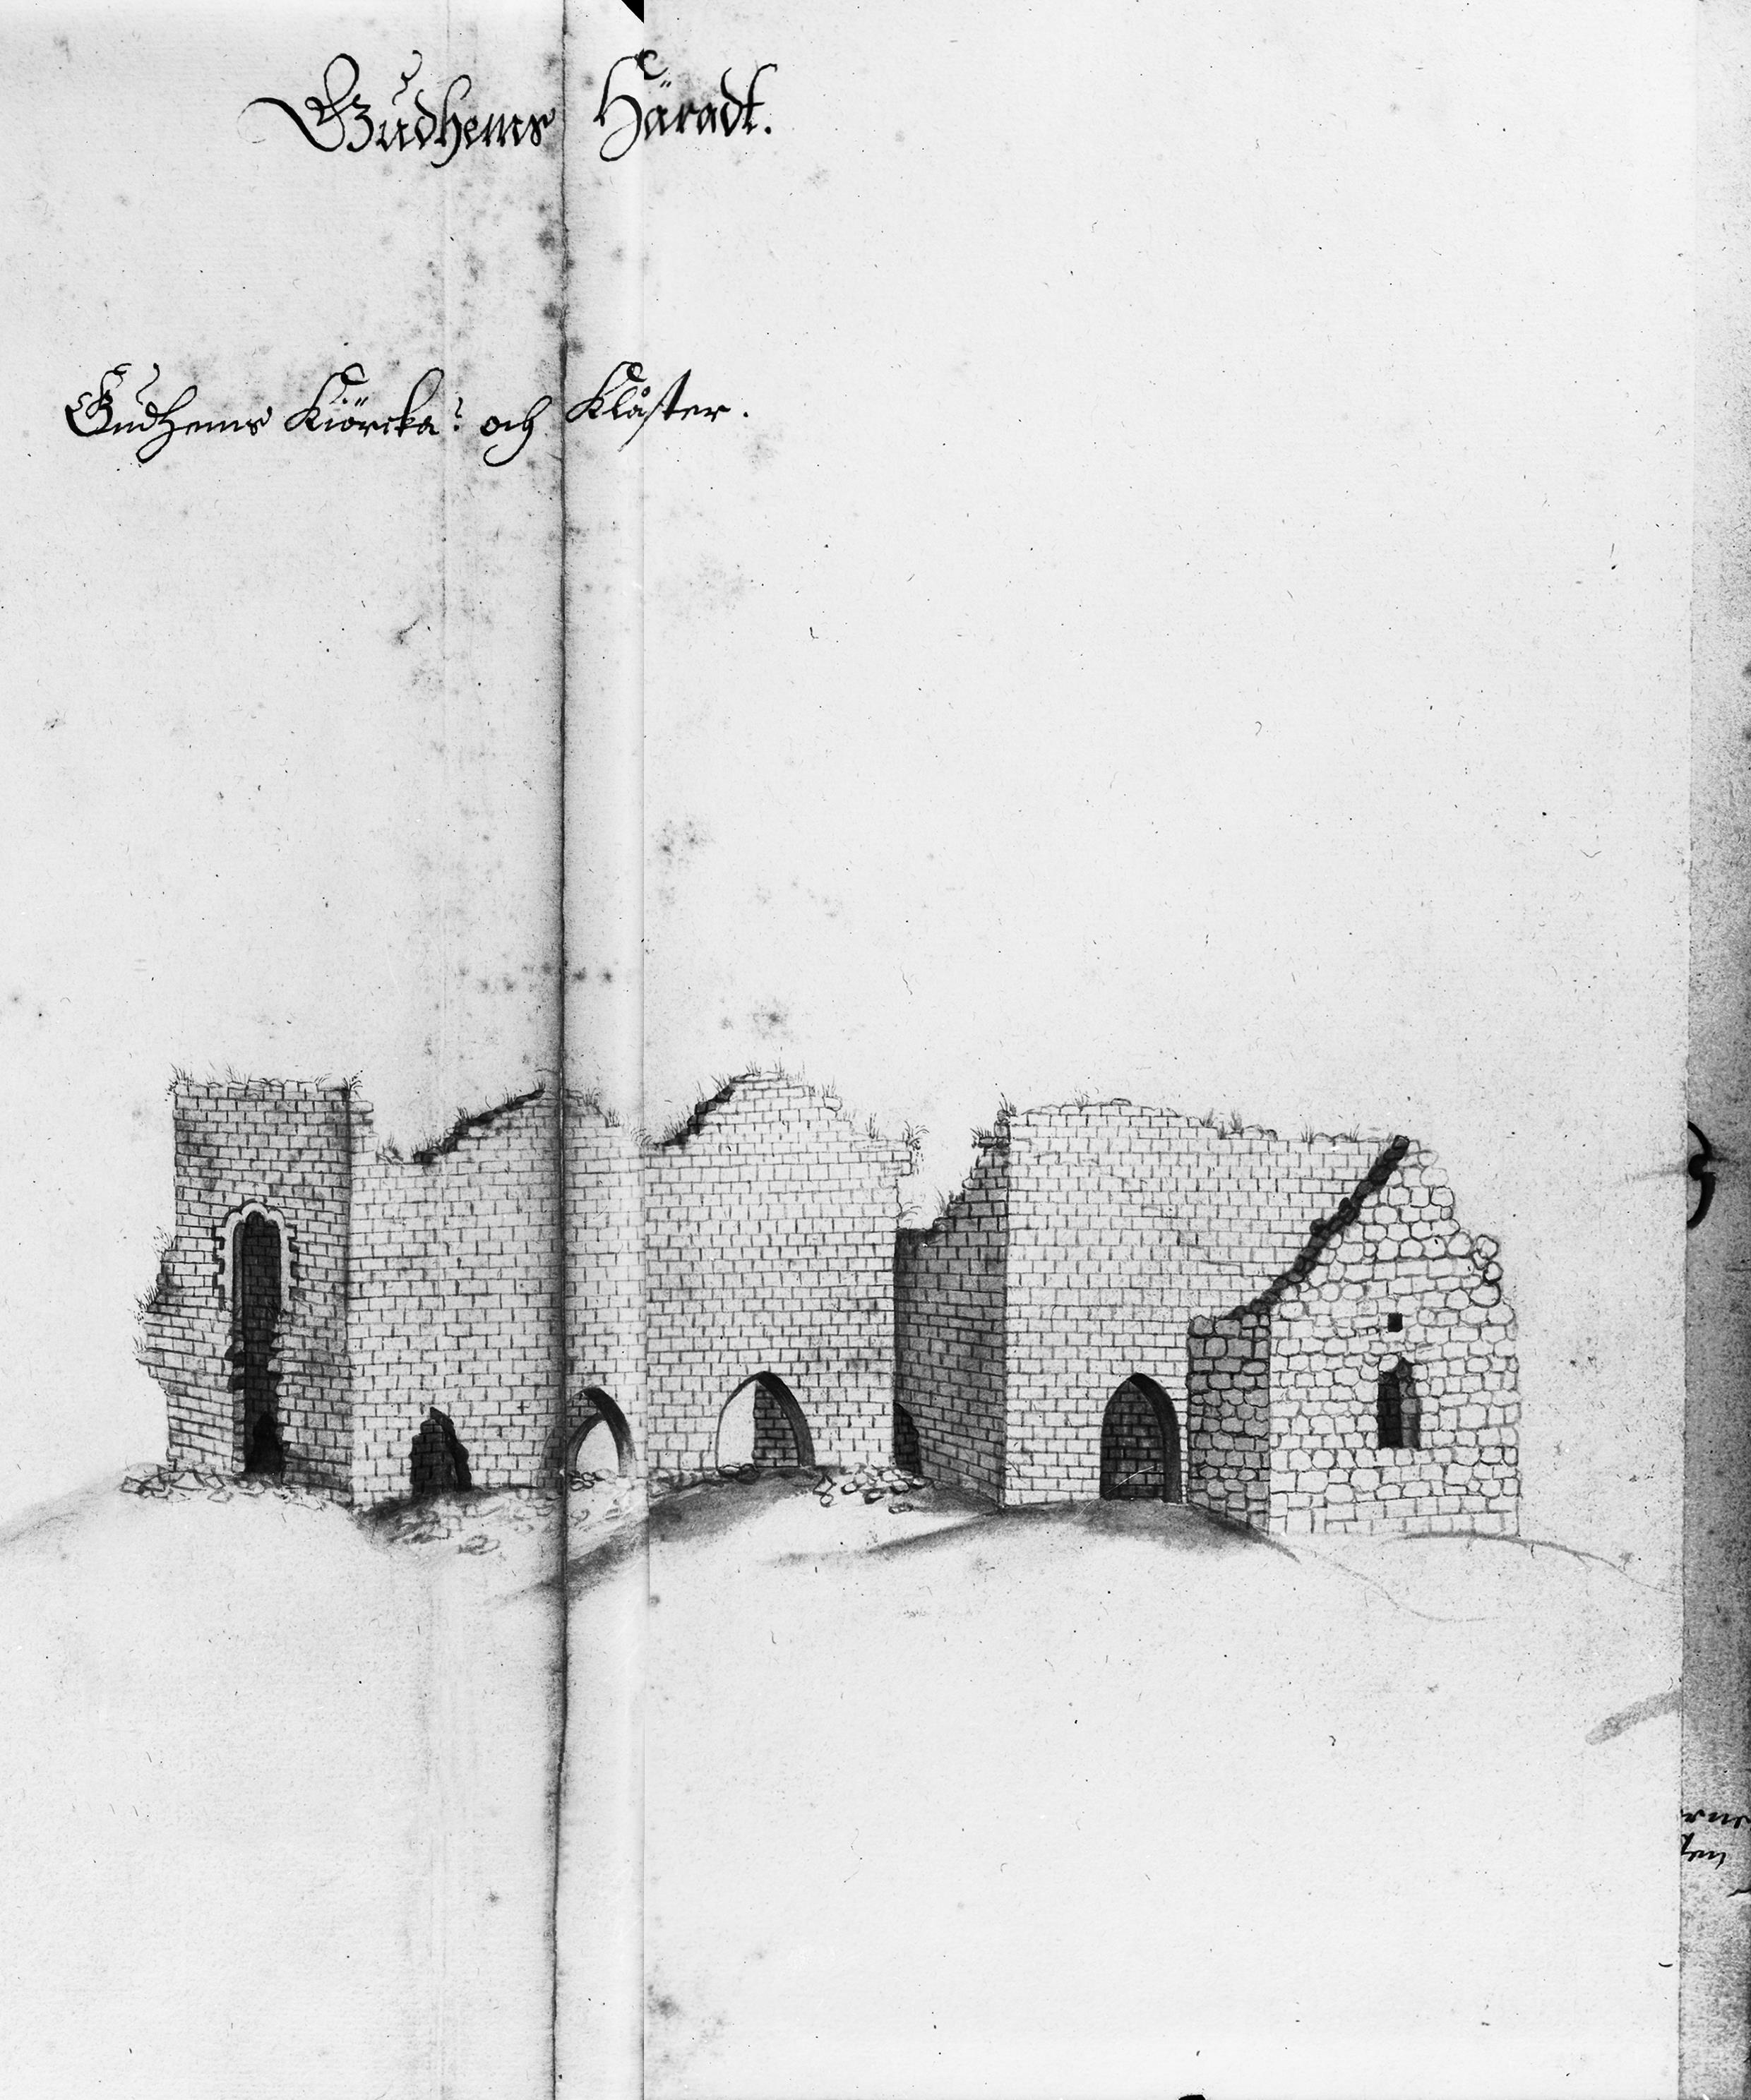 Gudhems Häradt.
Gudhems Kiörcka: och Klåster.